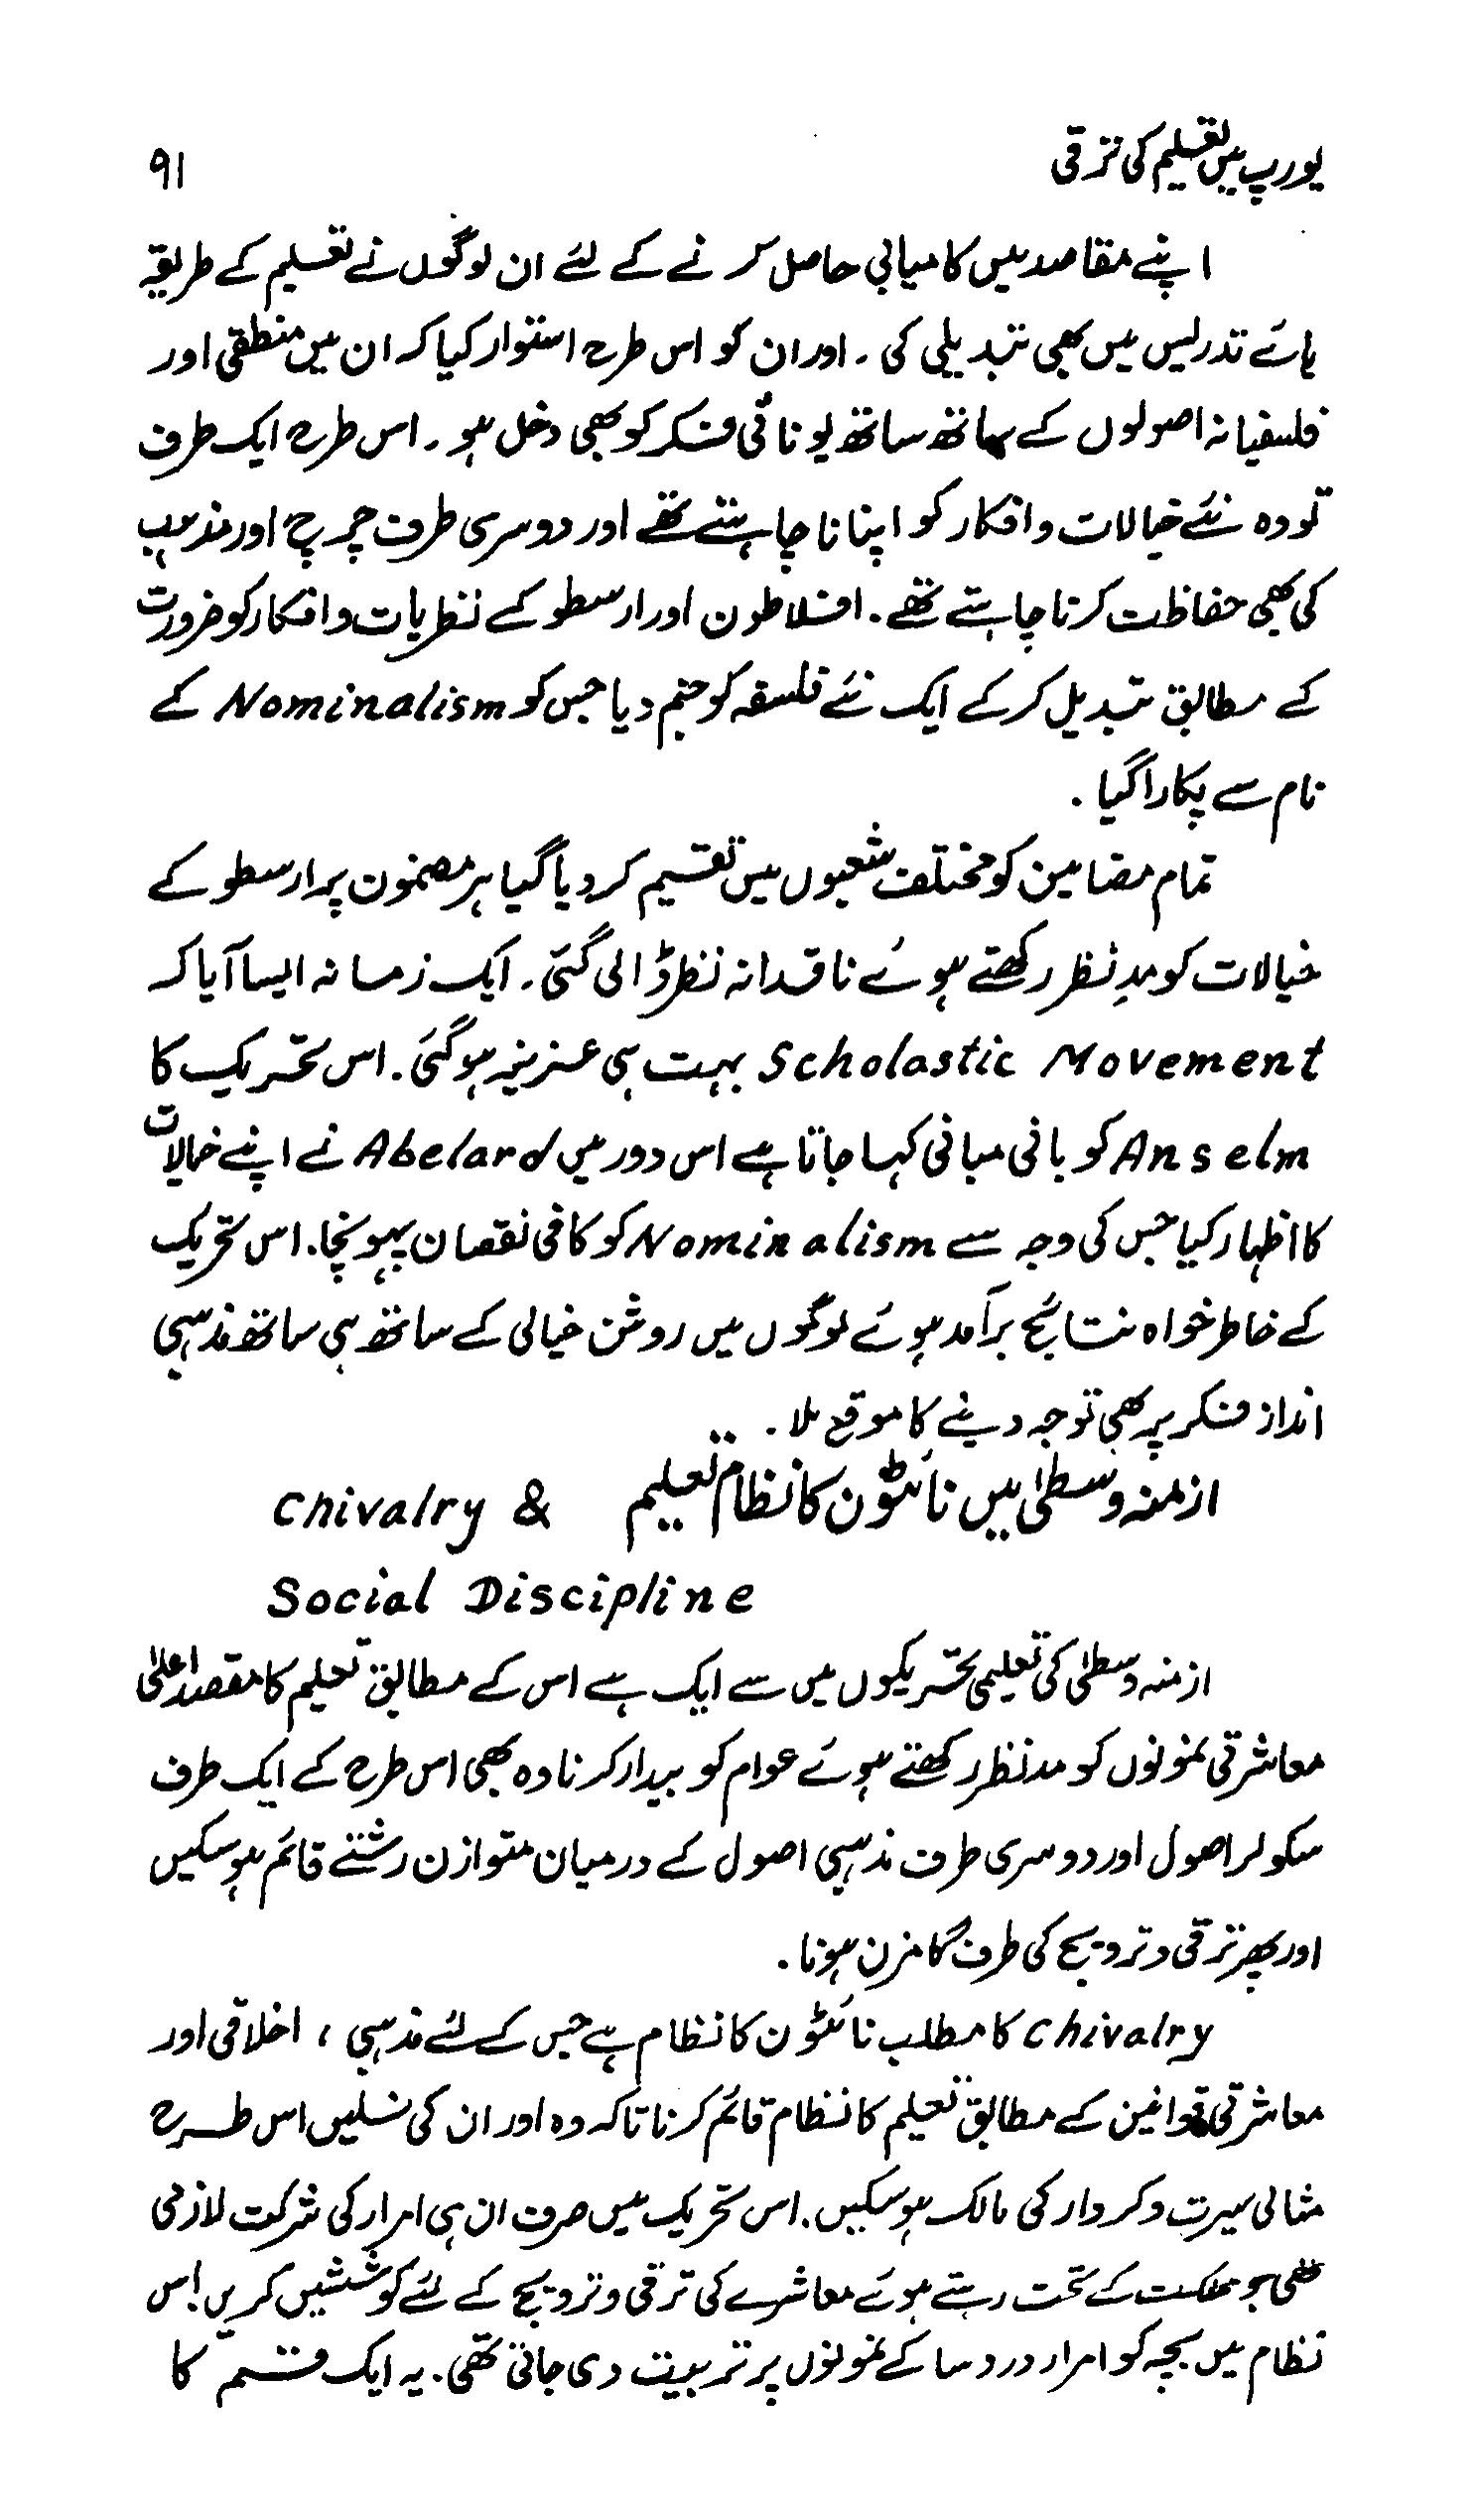 یورپ میں تعلیم کی ترقی
۹۱
اپنے مقاصد میں کامیابی حاصل کرنے کے لئے ان لوگوں نے تعلیم کے طریقہ
ہائے تدریس میں بھی تبدیلی کی۔ اور ان کو اس طرح استوار کیا کہ ان میں منطقی اور
فلسفیانہ اصولوں کے ساتھ ساتھ یونانی فکر کو بھی دخل ہو۔ اس طرح ایک طرف
تو وہ نئے خیالات و افکار کو اپنانا چاہتے تھے اور دوسری طرف چرچ اور مذہب
کی بھی حفاظت کرنا چاہتے تھے۔ افلاطون اور ارسطو کے نظریات و افکار کو ضرورت
کے مطابق تبدیل کر کے ایک نئے فلسفہ کو جنم دیا جس کو Nominalism کے
نام سے پکارا گیا۔
تمام مضامین کو مختلف شعبوں میں تقسیم کر دیا گیا ہر مضمون پر ارسطو کے
خیالات کو مدِنظر رکھتے ہوئے ناقدانہ نظر ڈالی گئی۔ ایک زمانہ ایسا آیا کہ
Scholastic Movement بہت ہی عزیز ہو گئی۔ اس تحریک کا
Anselm کو بانی مبانی کہا جاتا ہے اس دور میں Abelard نے اپنے خیالات
کا اظہار کیا جس کی وجہ سے Nominalism کو کافی نقصان پہونچا۔ اس تحریک
کے خاطر خواہ نتائج برآمد ہوئے لوگوں میں روشن خیالی کے ساتھ ہی ساتھ مذہبی
انداز فکر پر بھی توجہ دینے کا موقع ملا۔
ازمنہ وسطیٰ میں نائٹوں کا نظام تعلیم Chivalry &
Social Discipline
ازمنہ وسطیٰ کی تعلیمی تحریکوں میں سے ایک ہے اس کے مطابق تعلیم کا مقصد اعلیٰ
معاشرتی نمونوں کو مدنظر رکھتے ہوئے عوام کو بیدار کرنا وہ بھی اس طرح کے ایک طرف
سکولر اصول اور دوسری طرف مذہبی اصول کے درمیان متوازن رشتے قائم ہو سکیں
اور پھر ترقی و ترویج کی طرف گامزن ہونا۔
Chivalry کا مطلب نائٹوں کا نظام ہے جس کے لئے مذہبی ، اخلاقی اور
معاشرتی قوانین کے مطابق تعلیم کا نظام قائم کرنا تاکہ وہ اور ان کی نسلیں اس طرح
مثالی سیرت و کردار کی مالک ہو سکیں۔ اس تحریک میں صرف ان ہی امراء کی شرکت لازمی
تھی جو مملکت کے تحت رہتے ہوئے معاشرے کی ترقی و ترویج کے لئے کوششیں کریں۔ اس
نظام میں بچہ کو امراء و روسا کے نمونوں پر تربیت دی جاتی تھی۔ یہ ایک قسم کا